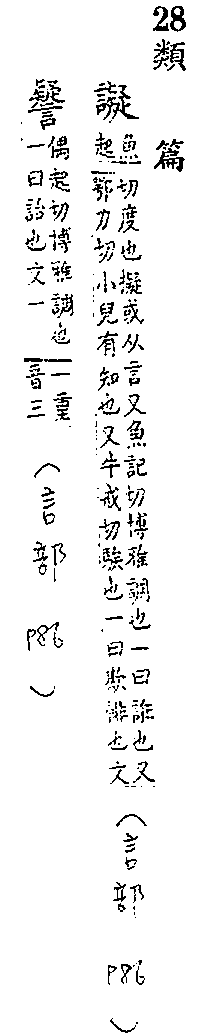 28類篇
譺
魚切度也擬或从言又魚記切博雅調也一曰誰也又
起鄂力切小兒有知也又牛戒切騃也一曰欺誹也文
（言部 P86）
偶起切博雅調也一重
一曰詒也文一音三
（言部 P86）